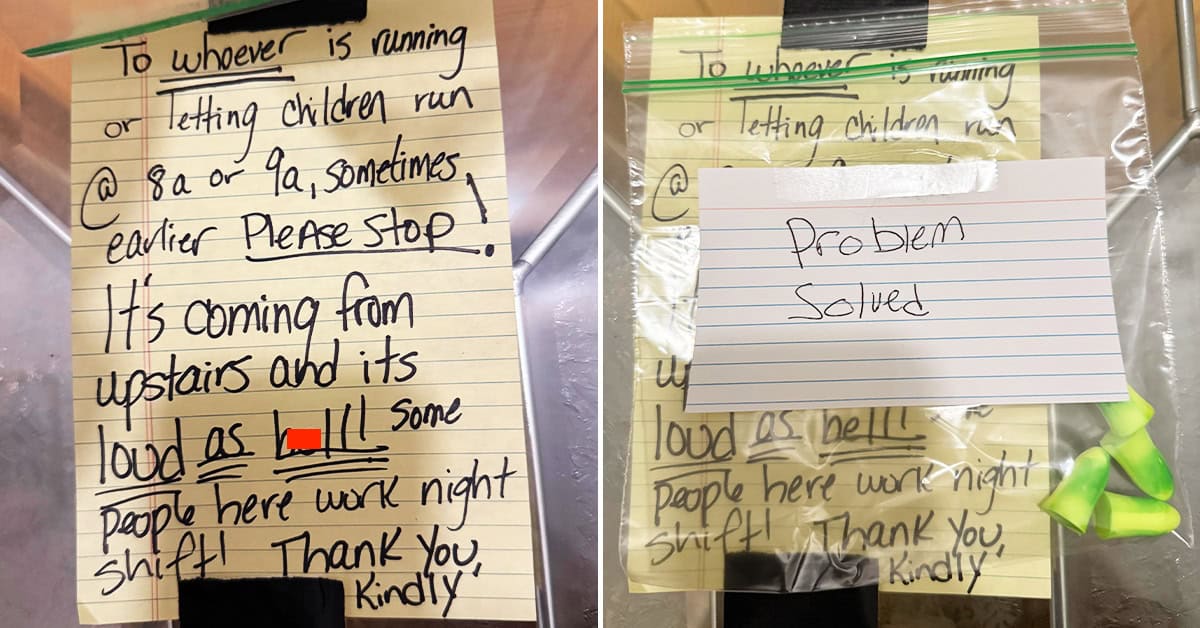 To whoever is running
or letting children run
@ 8a or 9a, sometimes
earlier Please Stop!
It's coming from
upstairs and its
loud as h ll! some
people here work night
shift! Thank You,
Kindly
To whoever is running
or letting children run
@
Problem
Solved
up
loud as hell!
people here work night
shift! Thank You,
Kindly